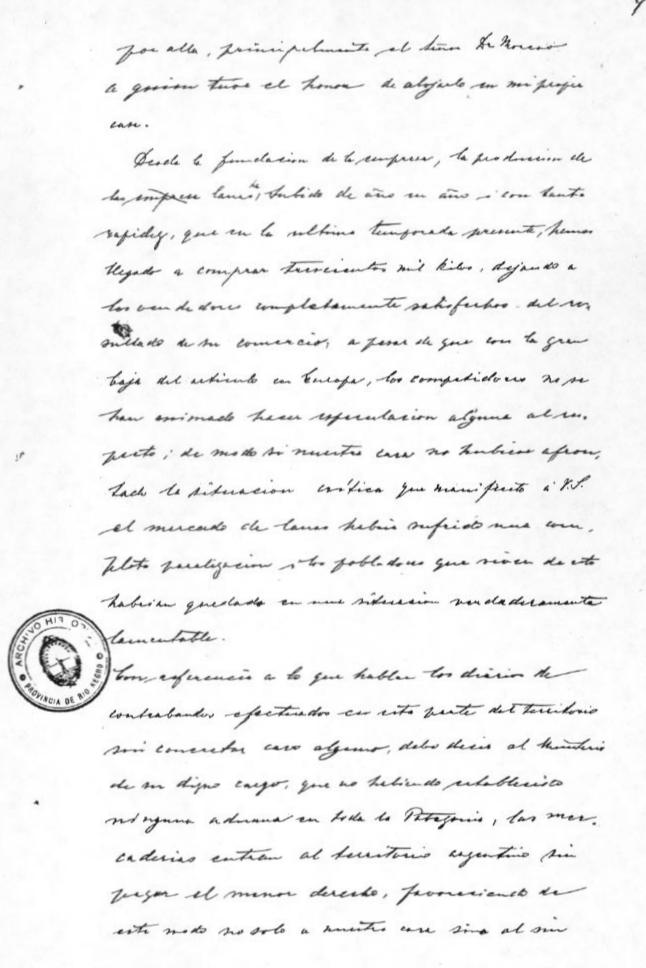 por alla, principalmente el Señor Dr Moreno
a quien tuve el honor de alojarlo en mi propia
casa.
Desde la fundacion de la empresa, la produccion de
las empresa lanas, ha subido de año en año i con tanta
rapidez, que en la ultima temporada presente, hemos
llegado a comprar trescientos mil kilos, dejando a
los vendedores completamente satisfechos del re-
sultado de su comercio, a pesar de que con la gran
baja del articulo en Europa, los competidores no se
han animado hacer especulacion alguna al res-
pecto; de modo si nuestra casa no hubiese afron-
tado la situacion crítica que manifiesto á V.S.
el mercado de lanas habria sufrido una com-
pleta paralizacion i los pobladores que viven de esto
habrian quedado en una situacion verdaderamente
lamentable.
Con referencia a lo que hablan los diarios de
contrabandos efectuados en esta parte del territorio
sin concretar caso alguno, debo decir al Ministerio
de su digno cargo, que no habiendo establecido
ninguna aduana en toda la Patagonia, las mer-
caderias entran al territorio argentino sin
pagar el menor derecho, favoreciendo de
este modo no solo a nuestra casa sino al sin
ARCHIVO HISTORICO
PROVINCIA DE RIO NEGRO